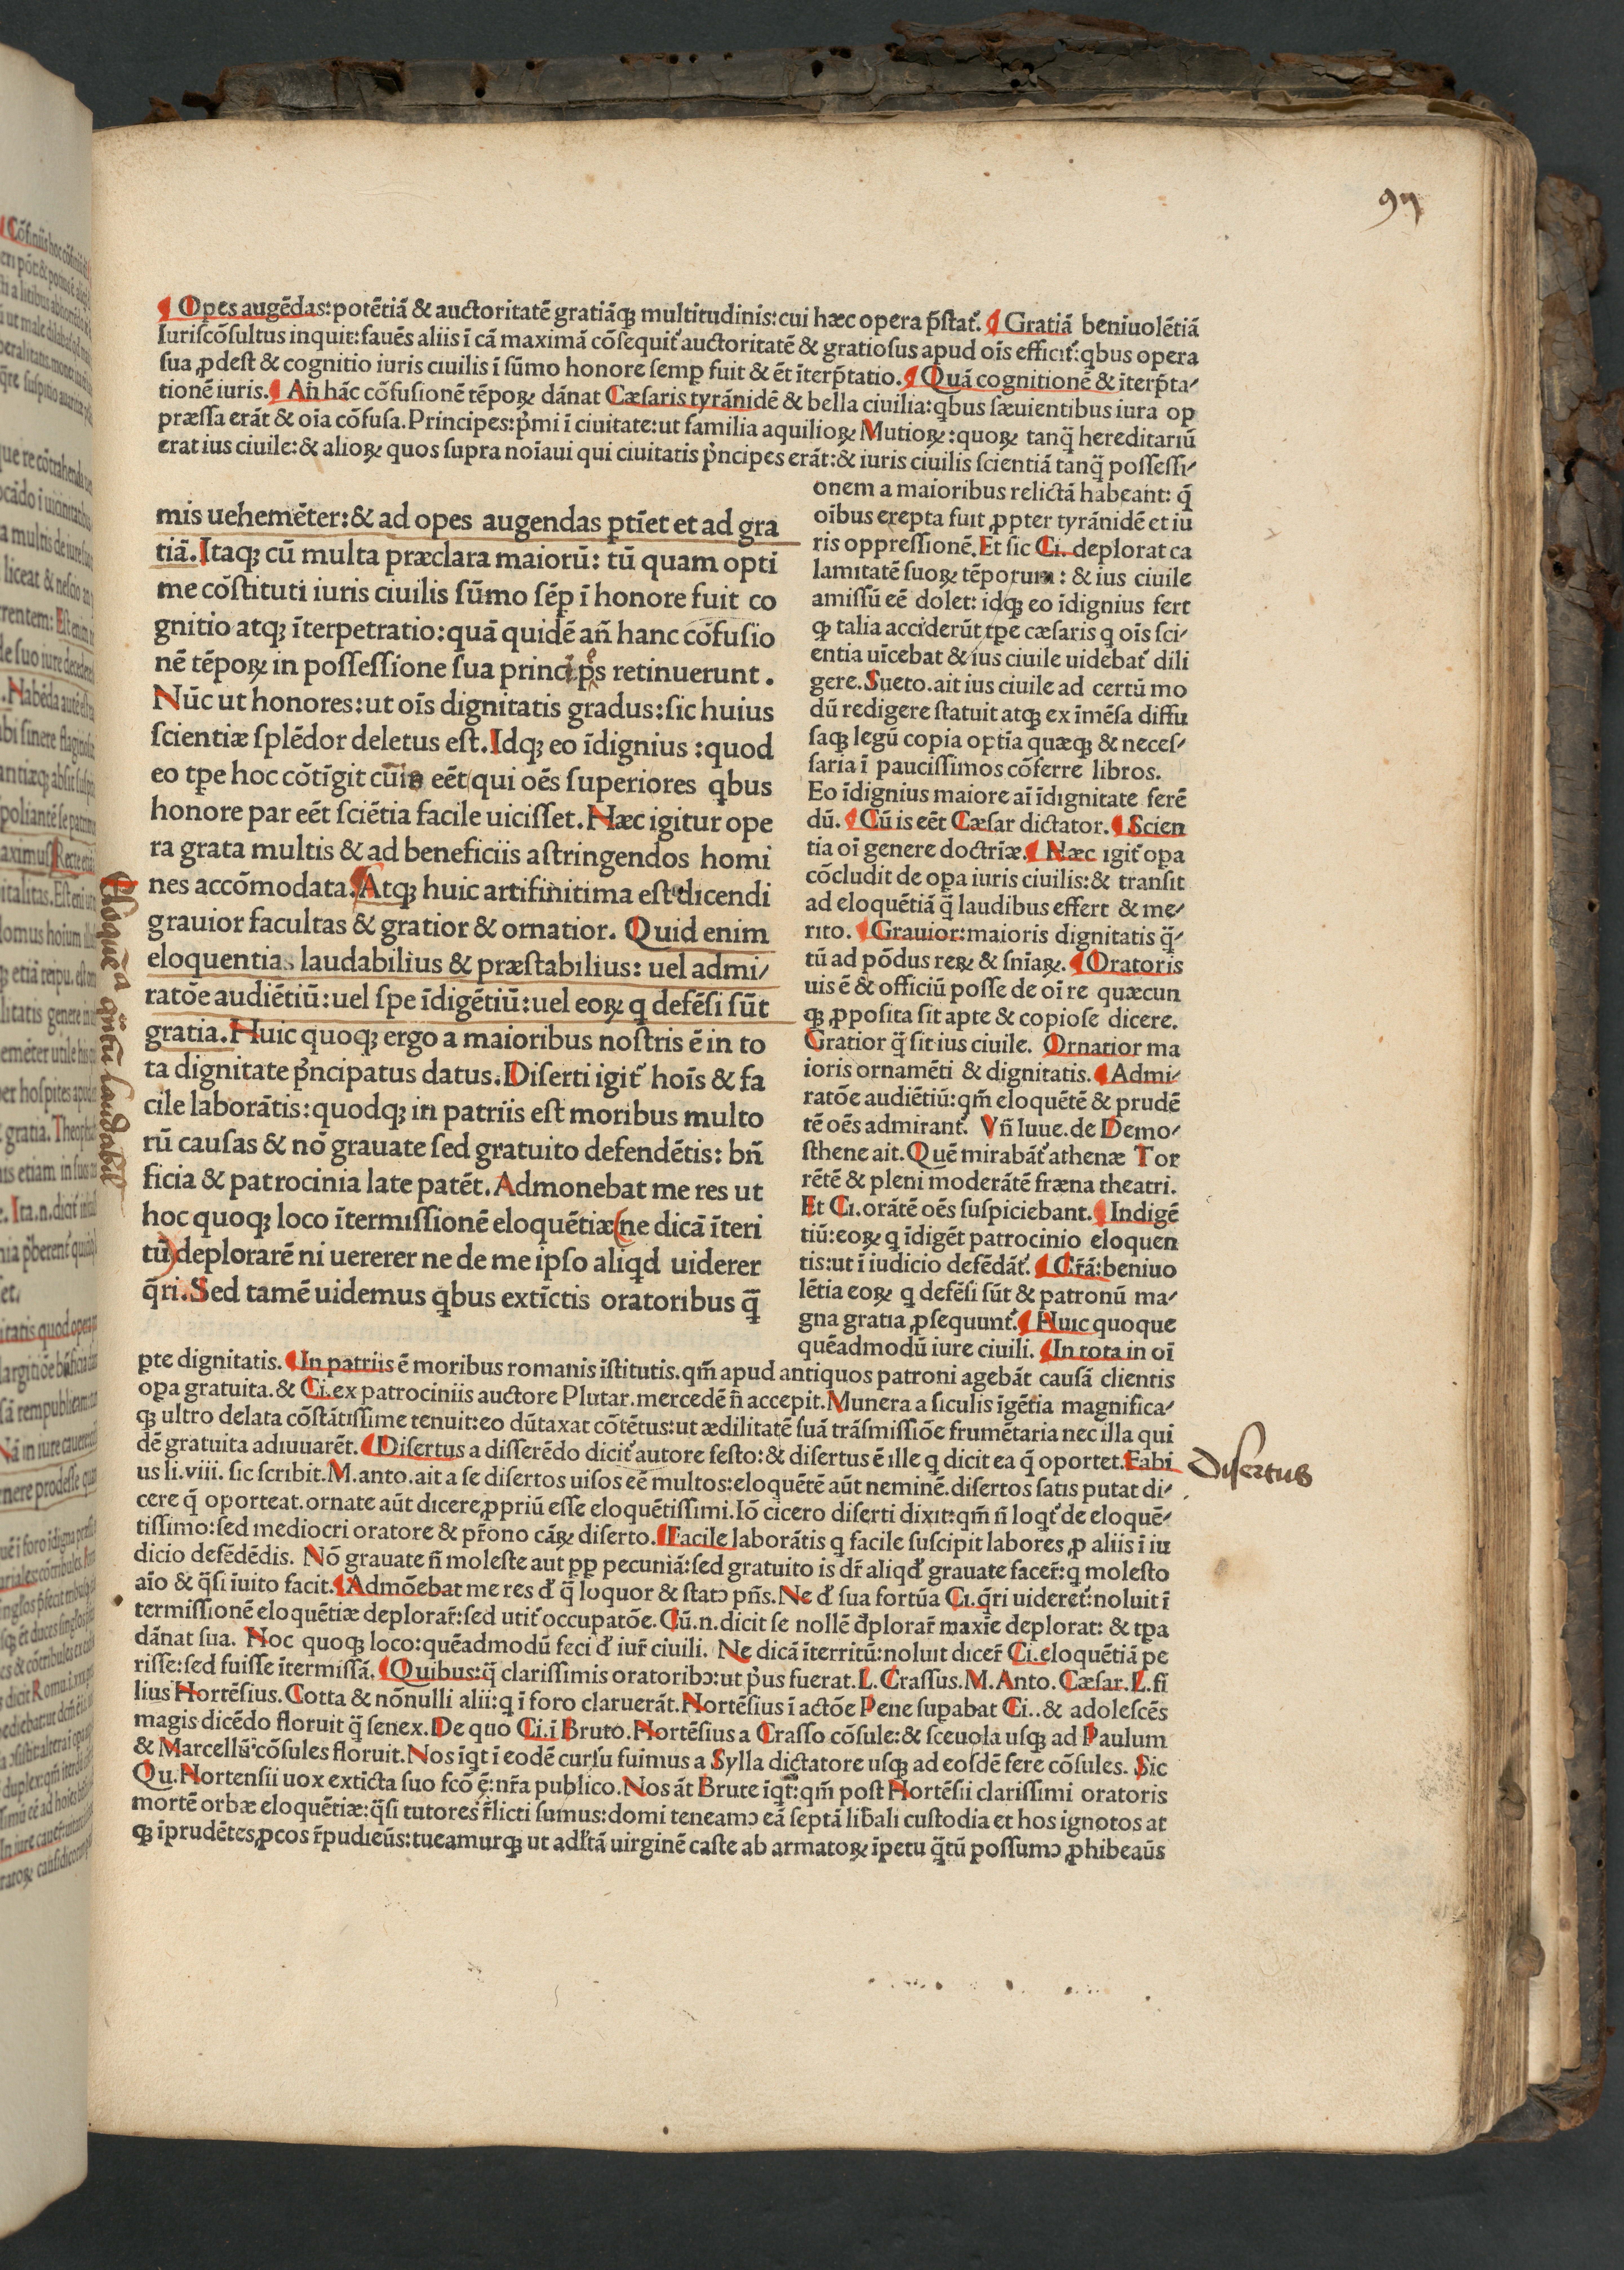 97
¶ Opes augēdas: potētiā & auctoritatē gratiāq; multitudinis: cui hæc opera p̄stat᷑. ¶ Gratiā beniuolētiā
Iuriſcōſultus inquit: fauēs aliis ī cā maximā cōſequit᷑ auctoritatē & gratioſus apud oīs efficit᷑: qbus opera
ſua ꝓdeſt & cognitio iuris ciuilis ī ſūmo honore ſemꝑ fuit & ēt īterp̄tatio. ¶ Quā cognitionē & īterp̄ta-
tionē iuris. ¶ An̄ hāc cōfuſionē tēpoꝝ dānat Cæſaris tyrānidē & bella ciuilia: qbus ſæuientibus iura op
præſſa erāt & oīa cōfuſa. Principes: p̄mi ī ciuitate: ut familia aquilioꝝ Mutioꝝ: quoꝝ tanq̄ hereditariū
erat ius ciuile: & alioꝝ quos ſupra noīaui qui ciuitatis p̄ncipes erāt: & iuris ciuilis ſcientiā tanq̄ poſſeſſi-
mis uehemēter: & ad opes augendas ptīet et ad gra
tiā. Itaq; cū multa præclara maiorū: tū quam opti
me cōſtituti iuris ciuilis ſūmo ſēp ī honore fuit co
gnitio atq; īterpetratio: quā quidē an̄ hanc cōfuſio
nē tēpoꝝ in poſſeſſione ſua principes retinuerunt.
Nūc ut honores: ut oīs dignitatis gradus: ſic huius
ſcientiæ ſplēdor deletus eſt. Idq; eo īdignius : quod
eo tpe hoc cōtīgit cū is eēt qui oēs ſuperiores qbus
honore par eēt ſciētia facile uiciſſet. Hæc igitur ope
ra grata multis & ad beneficiis aſtringendos homi
nes accōmodata. Atq; huic artifinitima eſt dicendi
grauior facultas & gratior & ornatior. Quid enim
eloquentia laudabilius & præſtabilius: uel admi/
ratōe audiētiū: uel ſpe īdigētiū: uel eoꝝ q defēſi ſūt
gratia. Huic quoq; ergo a maioribus noſtris ē in to
ta dignitate p̄ncipatus datus. Diſerti igit᷑ hoīs & fa
cile laborātis: quodq; in patriis eſt moribus multo
rū cauſas & nō grauate ſed gratuito defendētis: bn̄
ficia & patrocinia late patēt. Admonebat me res ut
hoc quoq; loco ītermiſſionē eloquētiæ (ne dicā īteri
tū) deplorarē ni uererer ne de me ipſo aliqd uiderer
q̄ri. Sed tamē uidemus qbus extīctis oratoribus q̄
Eloquētia q̄ntū laudabil
onem a maioribus relictā habeant: q̄
oību​s erepta fuit ꝓpter tyrānidē et iu
ris oppreſſionē. Et ſic Ci. deplorat ca
lamitatē ſuoꝝ tēporum : & ius ciuile
amiſſū eē dolet: idq; eo īdignius fert
ꝙ talia acciderūt tpe cæſaris q oīs ſci-
entia uīcebat & ius ciuile uidebat᷑ dili
gere. Sueto. ait ius ciuile ad certū mo
dū redigere ſtatuit atq; ex īmēſa diffu
ſaq; legū copia optīa quæq; & neceſ-
ſaria ī pauciſſimos cōferre libros.
Eo īdignius maiore aī īdignitate ferē
dū. ¶ Cū is eēt Cæſar dictator. ¶ Scien
tia oī genere doctrīæ. ¶ Hæc igit᷑ opa
cōcludit de opa iuris ciuilis: & tranſit
ad eloquētiā q̄ laudibus effert & me-
rito. ¶ Grauior: maioris dignitatis q̄-
tū ad pōdus reꝝ & ſnīaꝝ. ¶ Oratoris
uis ē & officiū poſſe de oī re quæcun
q; ꝓpoſita ſit apte & copioſe dicere.
Gratior q̄ ſit ius ciuile. Ornatior ma
ioris ornamēti & dignitatis. ¶ Admi-
ratōe audiētiū: qm̄ eloquētē & prudē
tē oēs admirant᷑. Vn̄ Iuue. de Demo-
ſthene ait. Quē mirabāt᷑ athenæ Tor
rētē & pleni moderātē fræna theatri.
Et Ci. orātē oēs ſuſpiciebant. ¶ Indigē
tiū: eoꝝ q īdigēt patrocinio eloquen
tis: ut ī iudicio defēdāt᷑. ¶ Gr̄ā: beniuo
lētia eoꝝ q defēſi ſūt & patronū ma-
gna gratia ꝓſequunt᷑. ¶ Huic quoque
quēadmodū iure ciuili. ¶ In tota in oī
pte dignitatis. ¶ In patriis ē moribus romanis īſtitutis. qm̄ apud antiquos patroni agebāt cauſā clientis
opa gratuita. & Ci. ex patrociniis auctore Plutar. mercedē n̄ accepit. Munera a ſiculis īgētia magnifica-
q; ultro delata cōſtātiſſime tenuit: eo dūtaxat cōtētus: ut ædilitatē ſuā trāſmiſſiōe frumētaria nec illa qui
dē gratuita adiuuarēt. ¶ Diſertus a diſſerēdo dicit᷑ autore feſto: & diſertus ē ille q dicit ea q̄ oportet. Fabi
us li. viii. ſic ſcribit. M. anto. ait a ſe diſertos uiſos eē multos: eloquētē aūt neminē. diſertos ſatis putat di-
cere q̄ oporteat. ornate aūt dicere ꝓpriū eſſe eloquētiſſimi. Iō cicero diſerti dixit: qm̄ n̄ loqt᷑ de eloquē-
tiſſimo: ſed mediocri oratore & pr̄ono cāꝝ diſerto. ¶ Facile laborātis q facile ſuſcipit labores ꝓ aliis ī iu
dicio defēdēdis. Nō grauate n̄ moleſte aut pp pecuniā: ſed gratuito is dr̄ aliqd grauate facer̄: q moleſto
aīo & q̄ſi īuito facit. ¶ Admōebat me res đ q̄ loquor & ſtatꝯ pn̄s. Ne đ ſua fortūa Ci. q̄ri uideret᷑: noluit ī
termiſſionē eloquētiæ deplorar̄: ſed utit᷑ occupatōe. Cū. n. dicit ſe nollē đplorar̄ maxīe deplorat: & tpa
dānat ſua. Hoc quoq; loco: quēadmodū feci đ iur̄ ciuili. Ne dicā īterritū: noluit dicer̄ Ci. eloquētiā pe
riſſe: ſed fuiſſe ītermiſſā. ¶ Quibus: q̄ clariſſimis oratoribꝯ: ut p̄us fuerat. L. Craſſus. M. Anto. Cæſar. L. fi
lius Hortēſius. Cotta & nōnulli alii: q ī foro claruerāt. Hortēſius ī actōe Pene ſupabat Ci.. & adoleſcēs
magis dicēdo floruit q̄ ſenex. De quo Ci. ī Bruto. Hortēſius a Craſſo cōſule: & ſceuola uſq; ad Paulum
& Marcellū cōſules floruit. Nos īqt ī eodē curſu fuimus a Sylla dictatore uſq; ad eoſdē fere cōſules. Sic
Qu. Hortenſii uox extīcta ſuo fcō ē: nr̄a publico. Nos āt Brute īqt: qm̄ poſt Hortēſii clariſſimi oratoris
mortē orbæ eloquētiæ: q̄ſi tutores r̄licti ſumus: domi teneamꝯ eā ſeptā lib̄ali cuſtodia et hos ignotos at
q; īprudētes ꝓcos r̄pudieūs: tueamurq; ut adl̄tā uirginē caſte ab armatoꝝ īpetu q̄tū poſſumꝯ ꝓhibeaūs
Diſertus